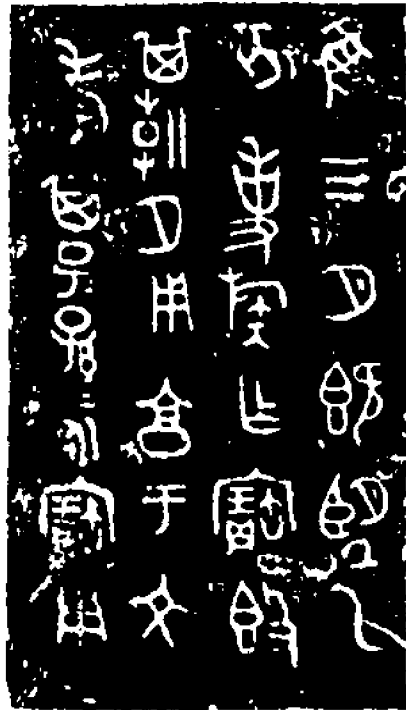 唯三月既望乙
亥事族作寶簋
其朝夕用享于文
考其子孫永寶用